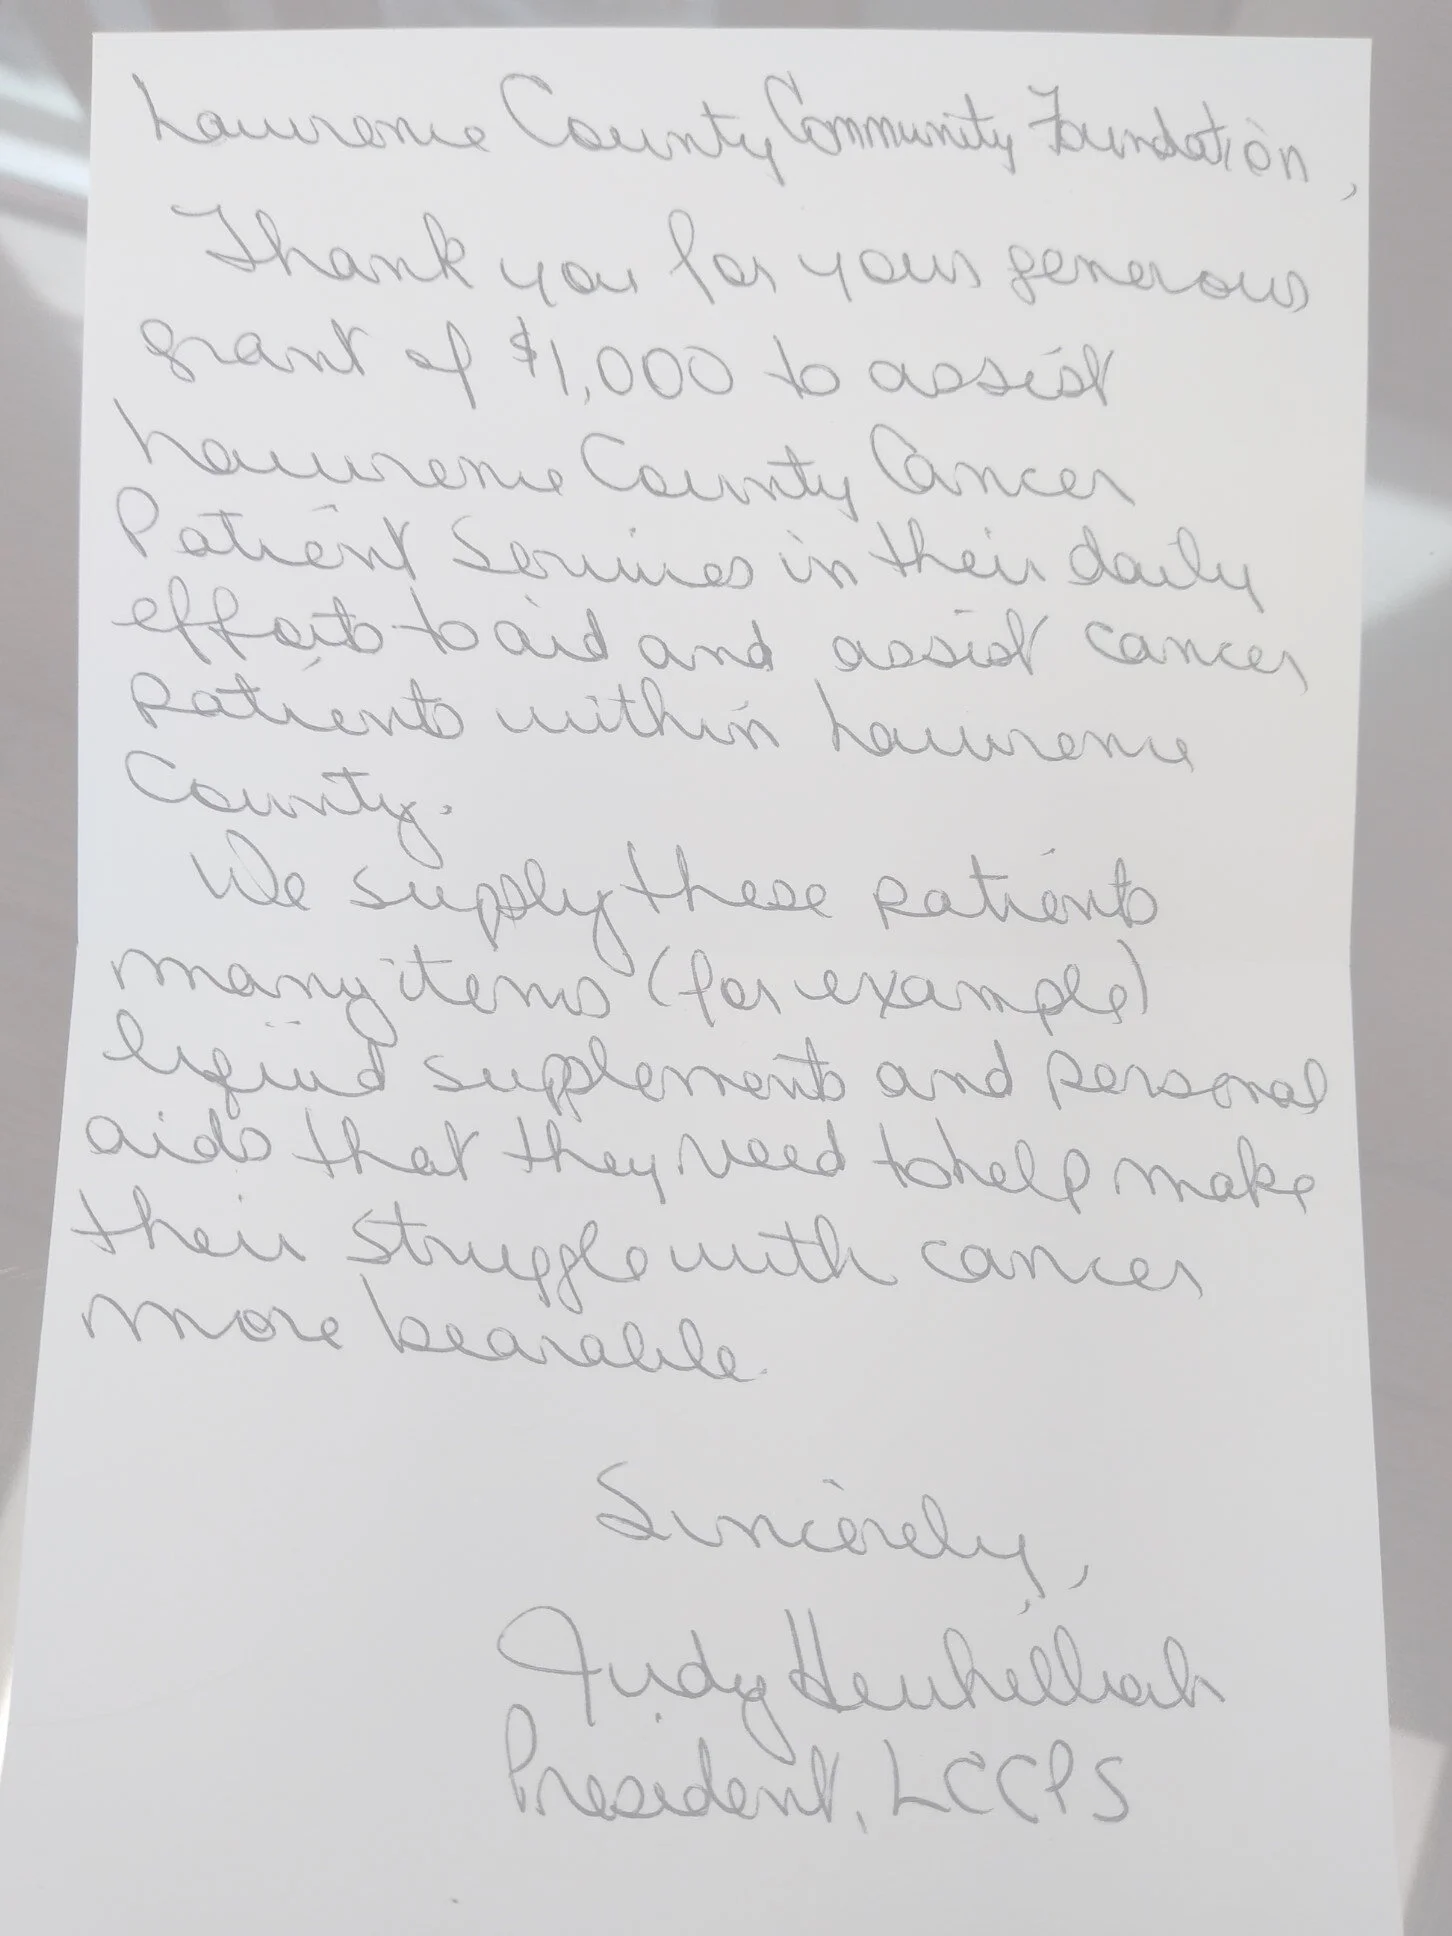 Lawrence County Community Foundation,
Thank you for your generous
grant of $1,000 to assist
Lawrence County Cancer
Patient Services in their daily
efforts to aid and assist cancer
patients within Lawrence
County.
We supply these patients
many items (for example)
liquid supplements and personal
aids that they need to help make
their struggle with cancer
more bearable.
Sincerely,
Judy
President, LCCPS